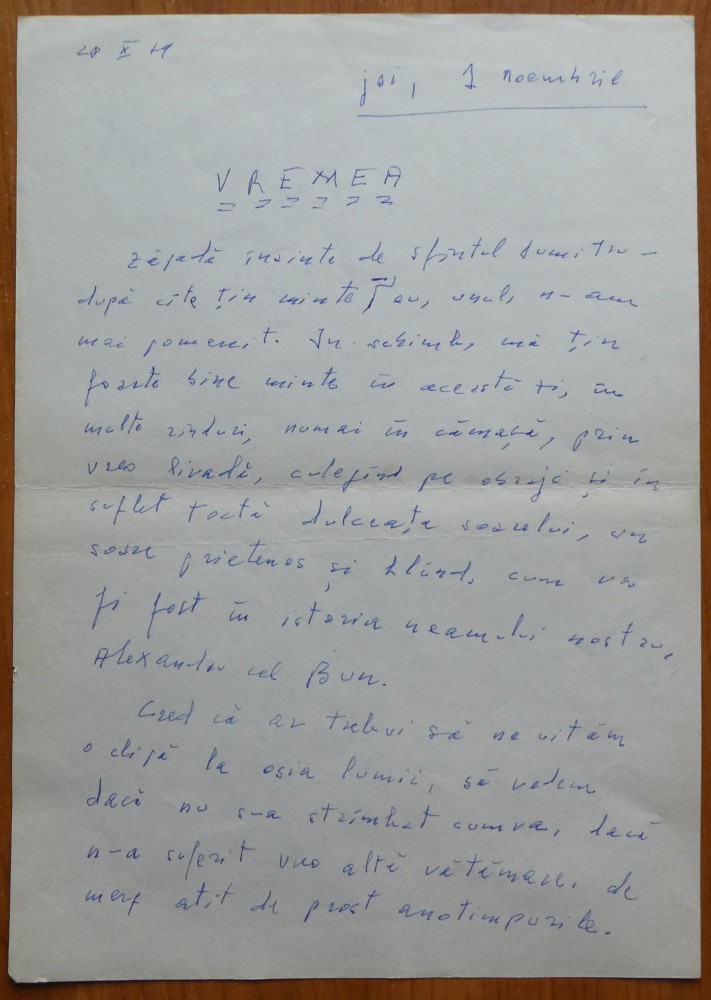 X
joi, 1 noembrie
VREMEA
Zăpadă înainte de sfîntul Dumitru –
după cîte țin minte eu, unul, n-am
mai pomenit. In schimb, mă țin
foarte bine minte în această zi, în
multe rînduri, numai în cămașă, prin
vreo livadă, culegînd pe obraji și în
suflet toată dulceața soarelui, un
soare prietenos și blînd, cum va
fi fost în istoria neamului nostru,
Alexandru cel Bun.
Cred că ar trebui să ne uităm
o clipă la osia lumii, să vedem
dacă nu s-a strîmbat cumva, dacă
n-a suferit vreo altă vătămare, de
merg atît de prost anotimpurile.